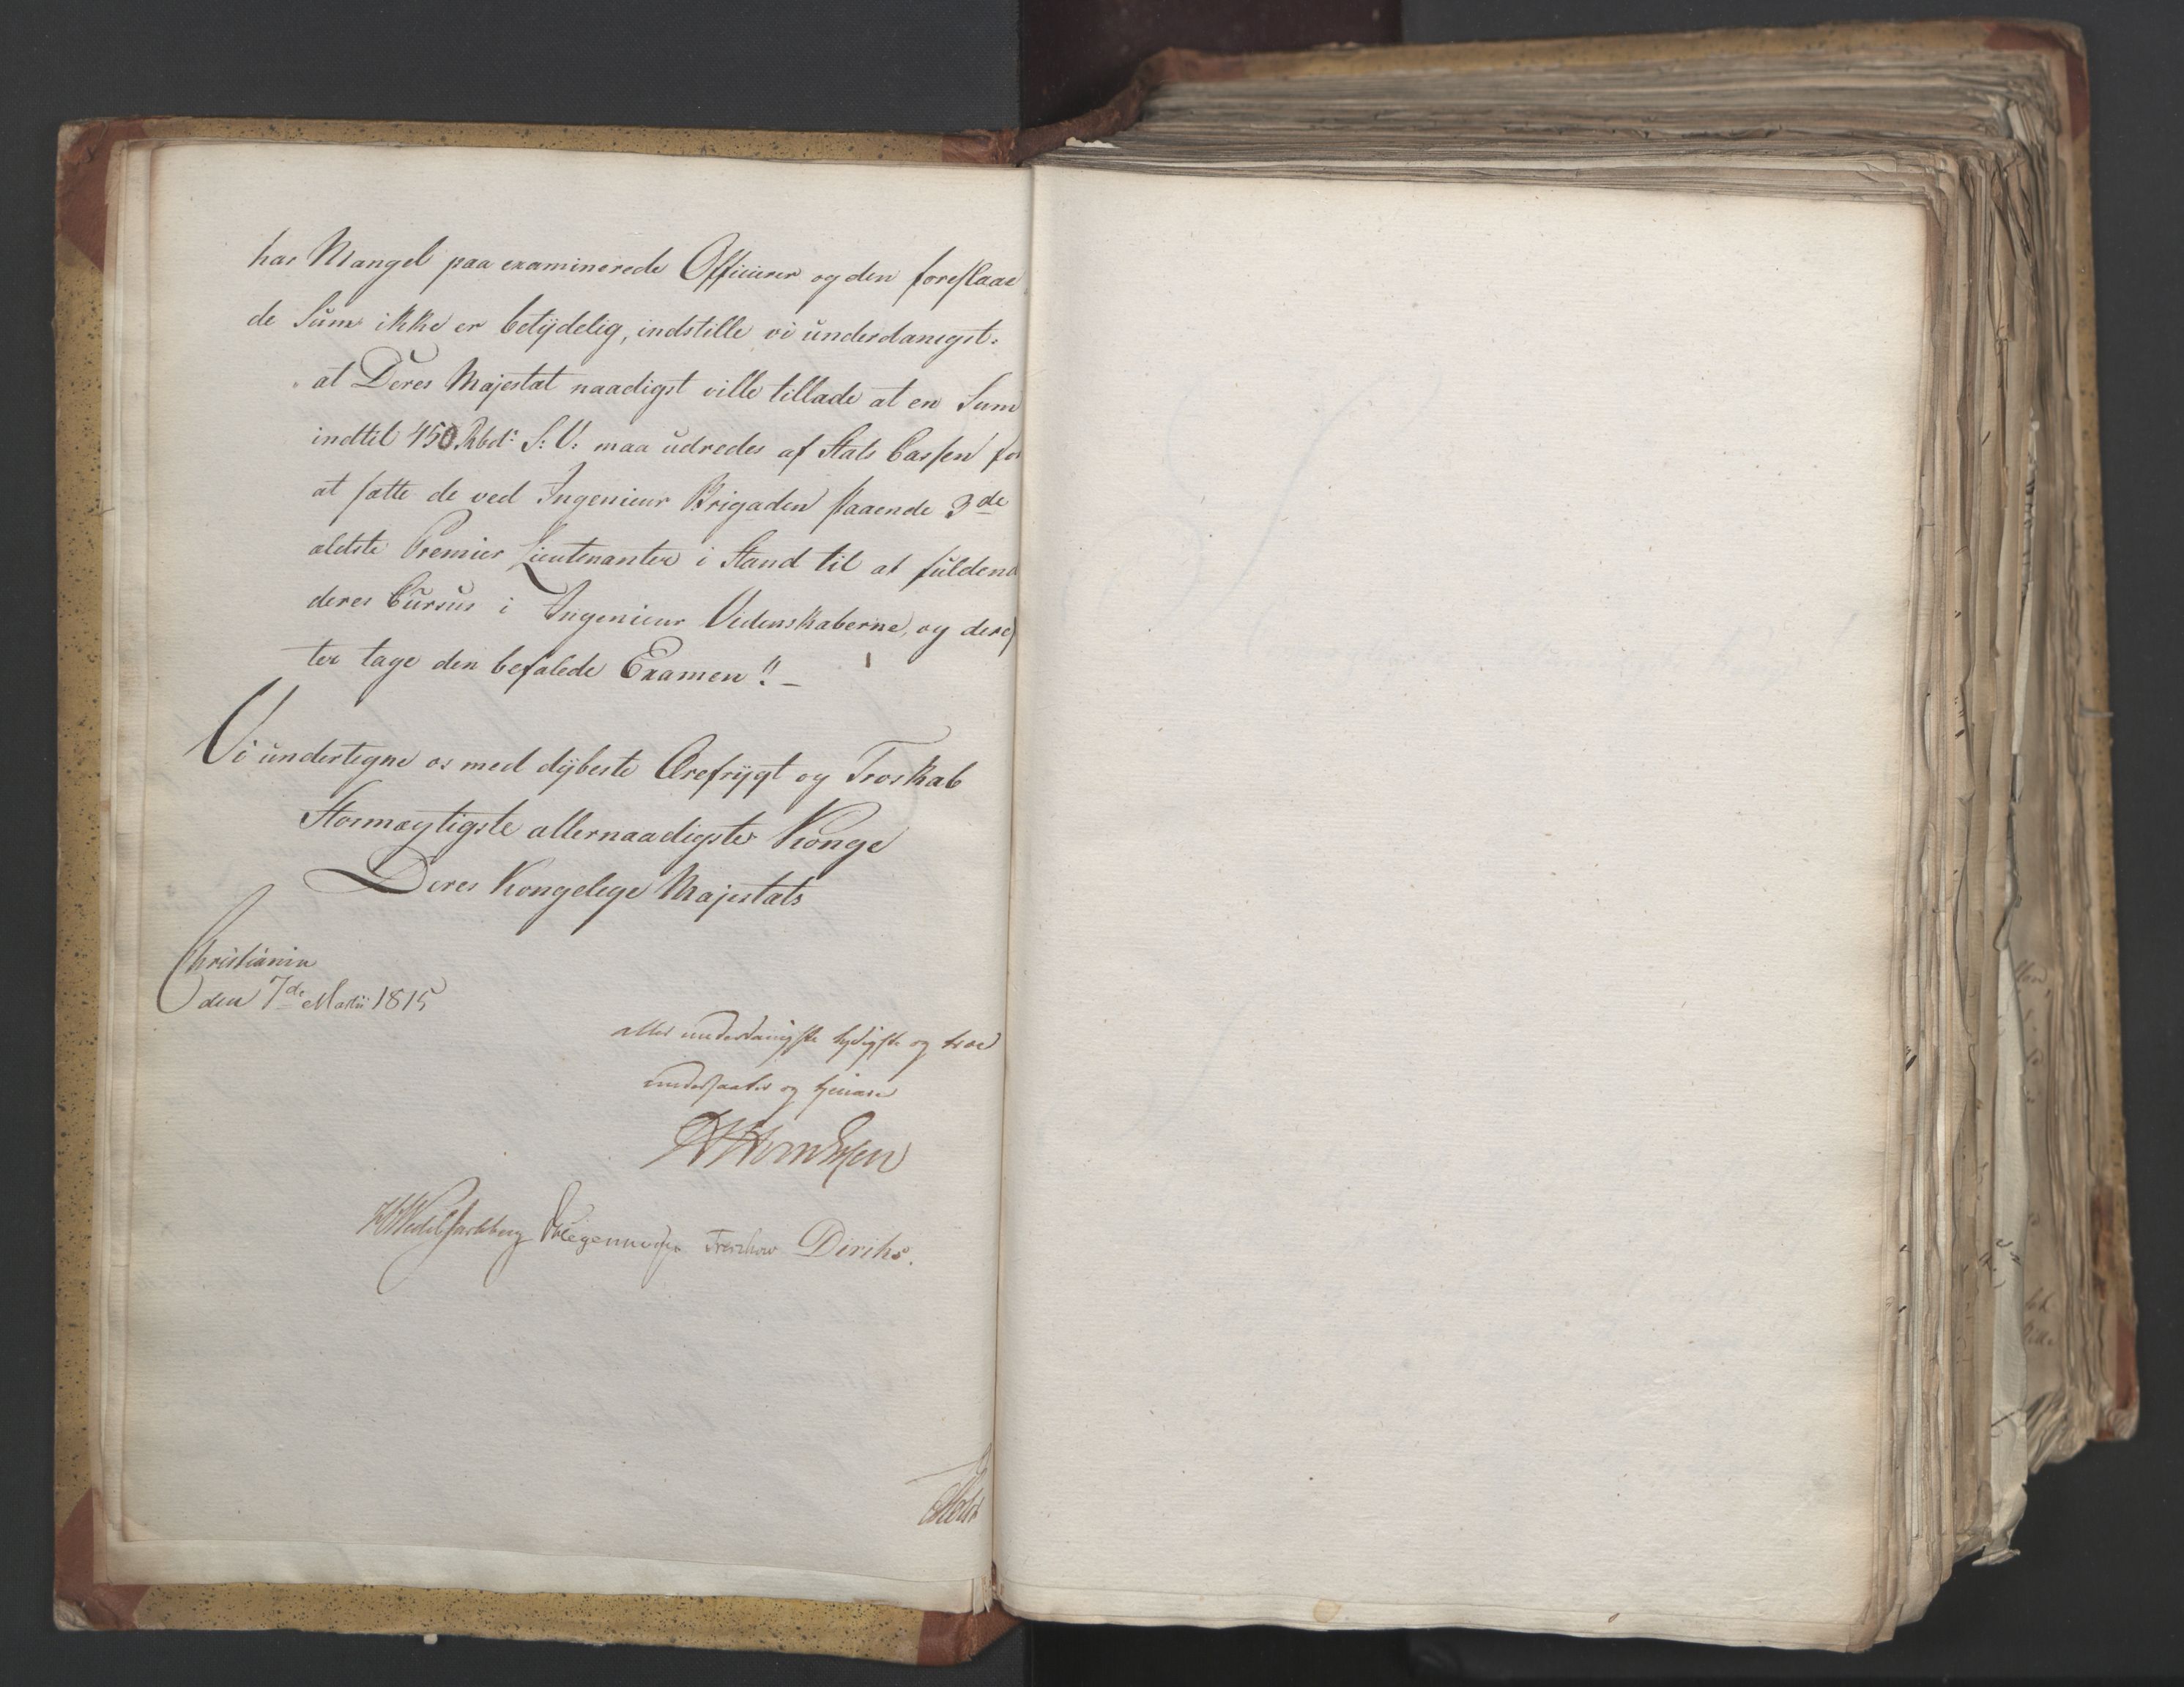 har Mangel paa examinerede Officierer og den foreslaae
de Sum ikke er betÿdelig, indstille vi underdanigst:
at Deres Majestæt naadigst ville tillade at en Sum
indtil 450 Rbd: S: V: maa udredes af Stats Cassen for
at sætte de ved Ingenieur Brigaden staaende 3de
ældste Premier Lieutenanter i Stand til at fuldend
deres Cursus i Ingenieur Videnskaberne, og deref
ter tage den befalede Examen!! —
Vi undertegne os med dÿbeste Ærefrÿgt og Troskab
Stormægtigste allernaadigste Konge
Deres Kongelige Majestæts
Christiania
den 7de Martii 1815
aller underdanigste lydigste og troe
undersaatter og tjenere
Wedel Jarlsberg Treschow Diriks.